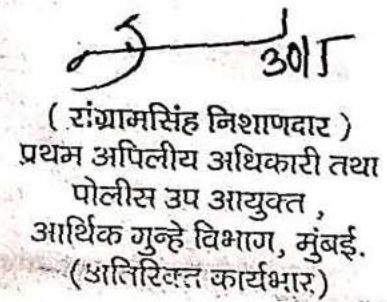 30/5
( संग्रामसिंह निशाणदार )
प्रथम अपिलीय अधिकारी तथा
पोलीस उप आयुक्त ,
आर्थिक गुन्हे विभाग, मुंबई.
(अतिरिक्त कार्यभार)